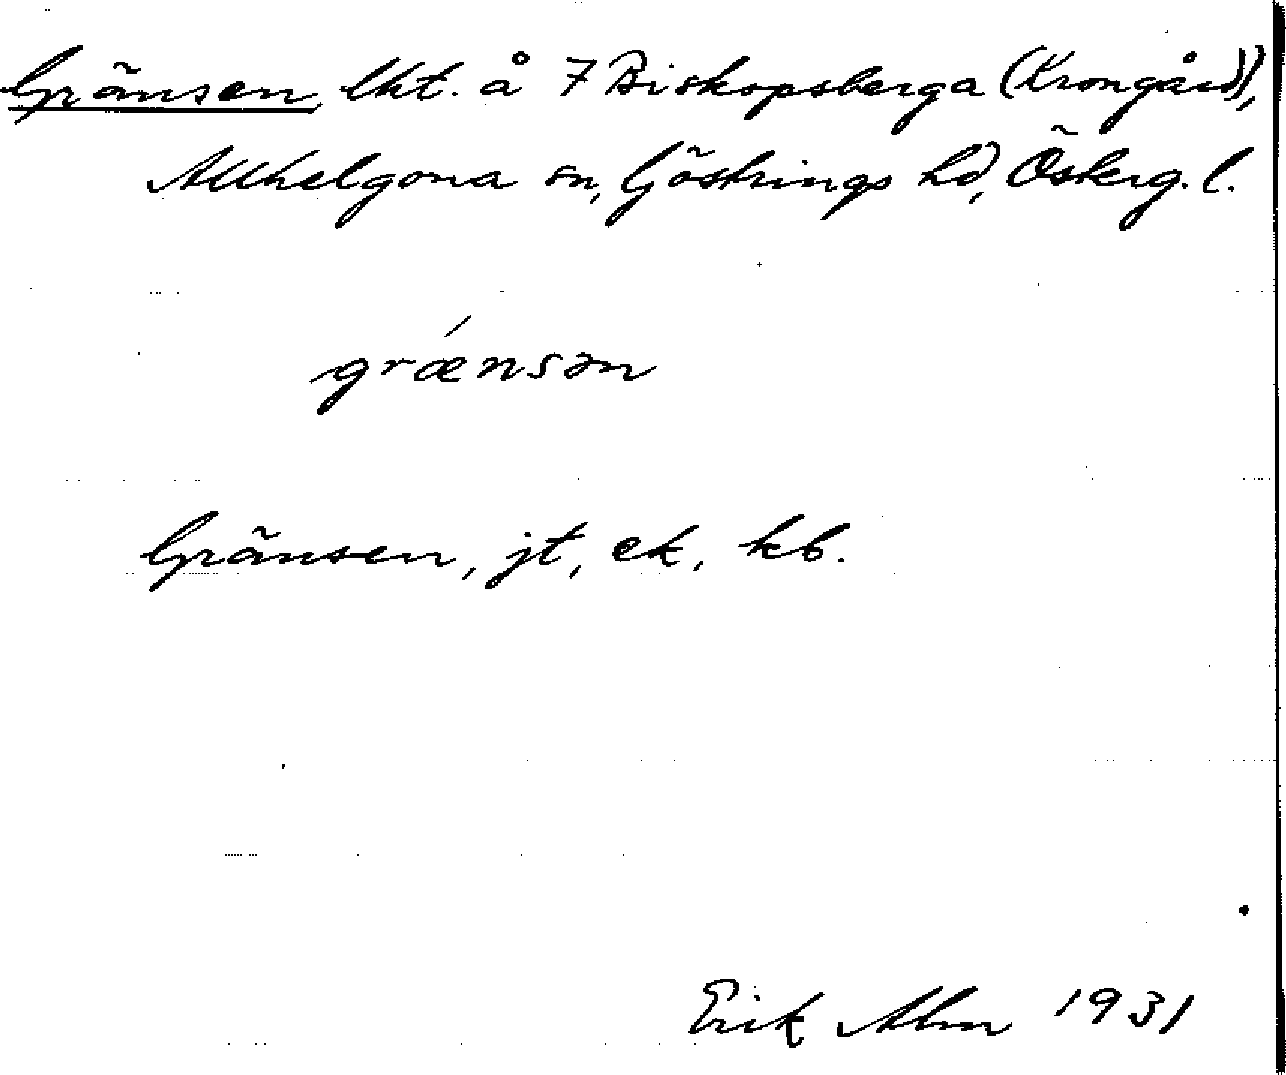 Gränsen, lht. å 7 Biskopsberga (Krongård),
Allhelgona sn, Göstrings hd, Österg. l.
grǽnsən
Gränsen, jt, ek, kb.
Erik Alm 1931